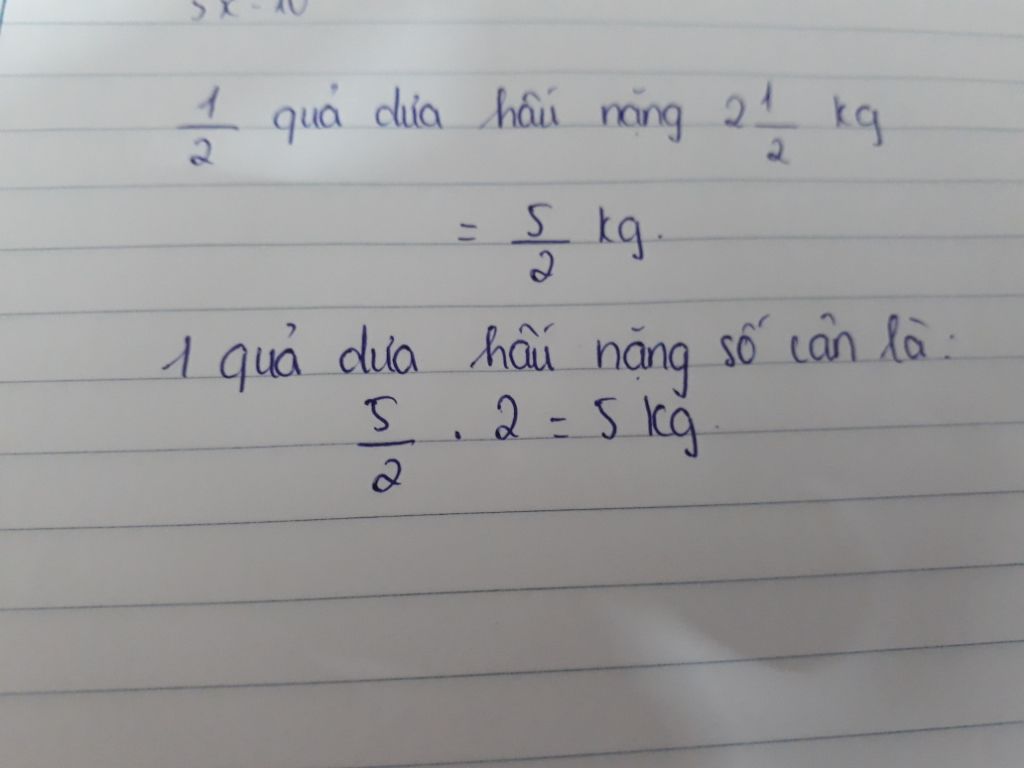 5x - 10
1/2 quả dưa hấu nặng 2 1/2 kg
= 5/2 kg.
1 quả dưa hấu nặng số cân là:
5/2 . 2 = 5 kg.